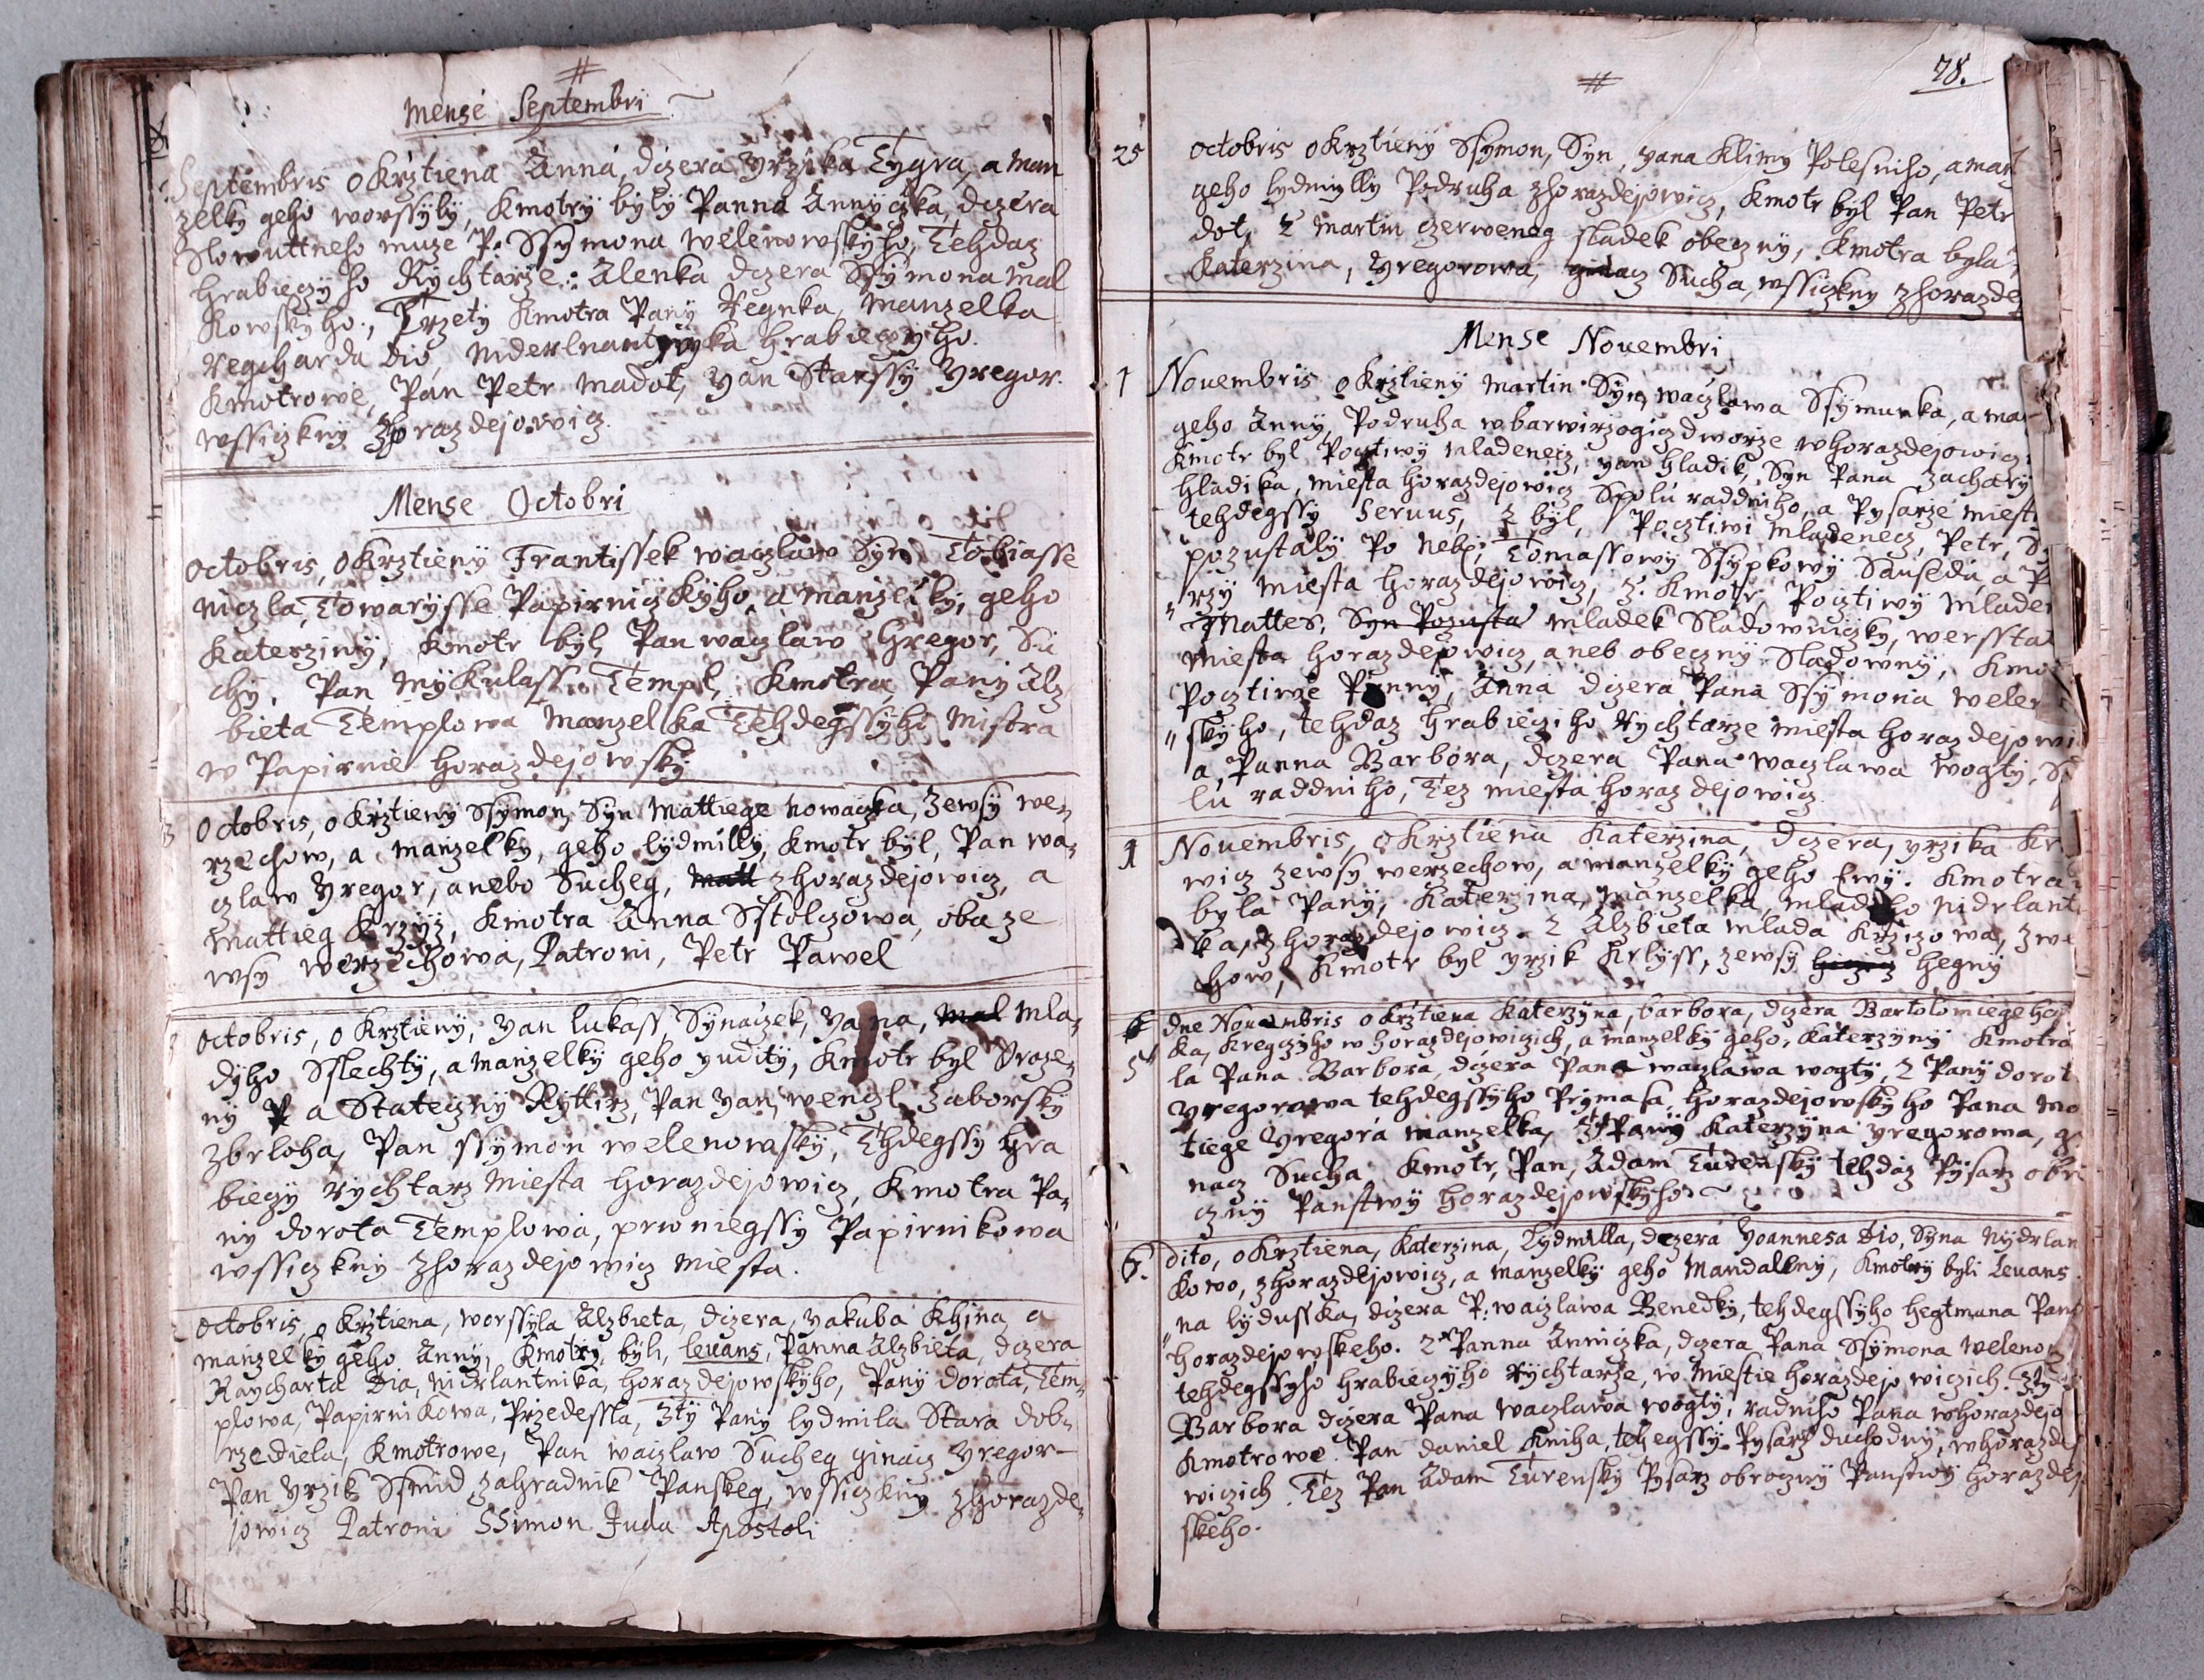 Mense Septembri
Septembris okrztiena Anna, dczera Yrzika Tygra, a man
zelky geho worssyly, Kmotry byly Panna Annyczka, dczera
Slowuttneho muze P. Ssymona welenowskyho, Tehdaz
hrabieczyho Rychtarze: Alenka dczera Ssymona Mal
kowskyho, Trzety Kmotra Pany Regnka, manzelka
regcharda Dio, hrabieczyho.
Kmotrowe, Pan Petr Madot, Yan Starssy Yregor.
wssiczkny Zhorazdejowicz.
Mense Octobri
Octobris, okrztieny Frantissek waczlaw Syn Tobiasse
niczla, Towarysse Papirniczkyho, a manzelky, geho
Katerziny, Kmotr byl, Pan waczlaw Gregor, Su
chy. Pan Mykulass Templ, Kmotra Pany Alz
bieta Templowa manzelka Tehdegssyho Mistra
w Papirnie horazdejowsky
Octobris, okrztieny Ssymon, Syn Mattiege nowaczka, zewsy we
rzechow, a manzelky, geho lydmilly, Kmotr byl, Pan wa
czlaw Yregor, anebo Sucheg, Matt zhorazdejowicz, a
Mattieg Krzyz, Kmotra Anna Sstolczowa, oba ze
wsy werzechowa, Patroni, Petr Pawel
Octobris, okrztieny, Yan lukass, Synaczek, Yana, Mal Mla
dyho Sslechty, a manzelky geho yudity, Kmotr byl Uroze
ny P a Stateczny Rytirz, Pan Yan, wenczl Zaborsky
Zbrloha, Pan Ssymon welenowsky, Thdegssy hra
bieczy rychtarz Miesta horazdejowicz, Kmotra Pa
ny dorota Templowa, prwniegssy Papirnikowa
wssiczkny zhorazdejowicz Miesta.
Octobris, okrztiena, worssyla Alzbieta, dczera, yakuba Khina a
manzelky geho Anny, Kmotry, byli, leuans, Panna Alzbieta, dczera
Raycharta Dia, nidrlantnika, horazdejowskyho, Pany dorota, Tem
plowa, Papirnikowa, Przedessla, 3ty Pany lydmila Stara dob
rzediela, Kmotrowe, Pan waczlaw Sucheg ginacz Yregor
Pan Yrzik Ssmid, zahradnik Panskeg, wssiczkny zhorazde
jowicz Patroni SSimon Juda Apostoli
28.
25 octobris okrztieny Ssymon, Syn, yana Klimy Polesniho, a man
geho lydmylly Podruha zhorazdejowicz, Kmotr byl Pan Petr
dot, 2 Martin czerweneg sladek obeczny, Kmotra byla
Katerzina, Yregorowa, ginacz Sucha, wssiczkny zhorazde
Mense Nouembri
1 Nouembris okrztieny Martin Syn, waczlawa Ssymunka, a ma
geho Anny, Podruha wbarwirzogicz dworze whorazdejowicz
Kmotr byl Pocztiwy Mladenecz, yan hladik, Syn Pana Zachary
hladika, miesta horazdejowicz Spolu raddniho, a Pysarze miest
tehdegssy Seruus, 2 byl, Pocztiwi Mladenecz, Petr, S
pozustaly Po neb: Tomassowy Ssypkowy Sauseda, a P
rzy Miesta horazdejowicz, 3. Kmotr, Pocztiwy Mladen
Mattes, Syn Pozusta Mladek Sladowniczky, wersstat
miesta horazdejowicz, aneb obeczny Sladowny, Kmo
Pocztiwe Panny, Anna dczera Pana Ssymona welen
skyho, tehdaz hrabieczyho Rychtarze miesta horazdejowi
a, Panna Barbora, dczera Pana waczlawa wogty, S
lu raddniho, Tez miesta horazdejowicz
1 Nouembris, okrztiena Katerzina, dczera, yrzika Kr
wicz zewsy werzechow, a manzelky geho Ewy. Kmotra
byla Pany, Katerzina, manzelka mladiho nidrlant
ka, zhorazdejowicz. 2 Alzbieta mlada Krziczowa, zwe
how, Kmotr byl yrzik Krlyss, zewsy hegny
5 dne Nouembris okrztiena Katerzyna, barbora, dczera Bartolomiege
ka, Kregczyho whorazdejowiczich, a manzelky geho, Katerzyny Kmotra
la Pana Barbora, dczera Pana waczlawa wogty, 2 Pany dorot
Yregorowa tehdegssyho Prymasa horazdejowskyho Pana Ma
tiege Yregora manzelka, 3ty Pany Katerzyna yregorowa, g
nacz Sucha Kmotr, Pan, Adam Turensky tehdaz Pysarz obro
czny Panstwy horazdejowskyho
6. dito, okrztiena, Katerzina, Lydmilla, dczera Yoannesa Dio, Syna nydrlan
kowo, zhorazdejowicz, a manzelky geho Mandaleny, Kmotry byli Leuans
na lydusska, dczera P: waczlawa Benedky, tehdegssyho hegtmana Pans
horazdejowskeho. 2 Panna Anniczka, dczera Pana Ssymona welenow
tehdegssyho hrabieczyho rychtarze, w Miestie horazdejowiczich. 3ty
Barbora dczera Pana waczlawa wogty, radniho Pana whorazdejo
Kmotrowe. Pan daniel Kniha, tehegssy Pysarz duchodny, whorazde
wiczich. Tez Pan Adam Turensky Pysarz obroczny Panstwy horazdej
skeho.